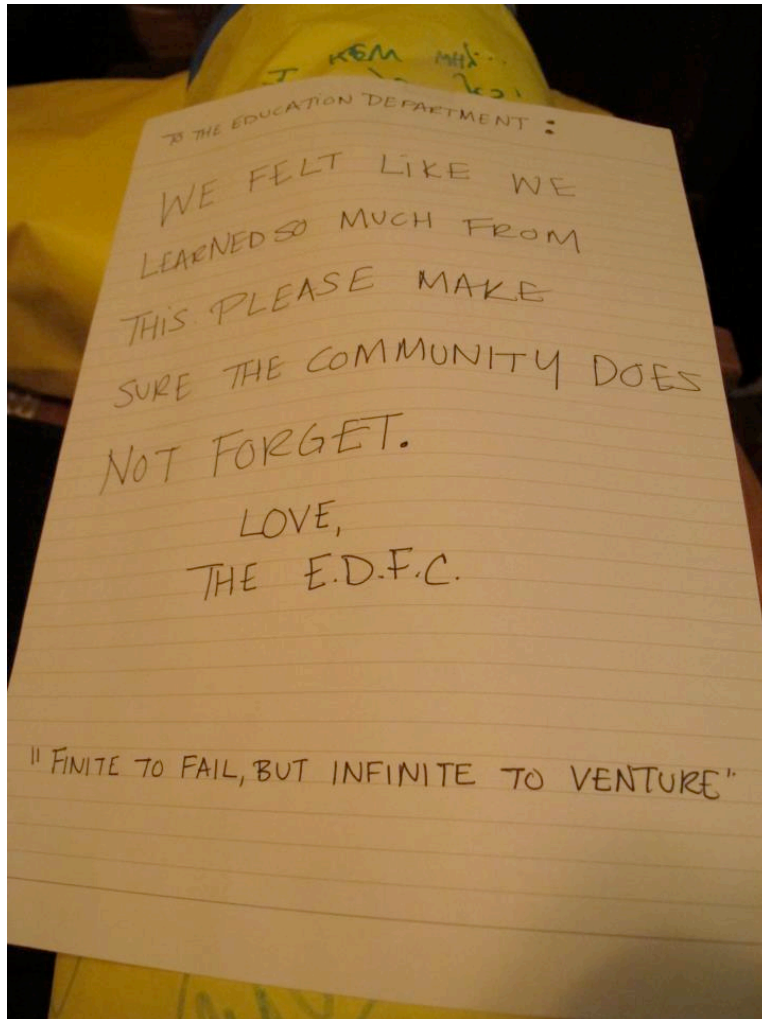 TO THE EDUCATION DEPARTMENT:
WE FELT LIKE WE
LEARNED SO MUCH FROM
THIS PLEASE MAKE
SURE THE COMMUNITY DOES
NOT FORGET.
LOVE,
THE E.D.F.C.
"FINITE TO FAIL, BUT INFINITE TO VENTURE"